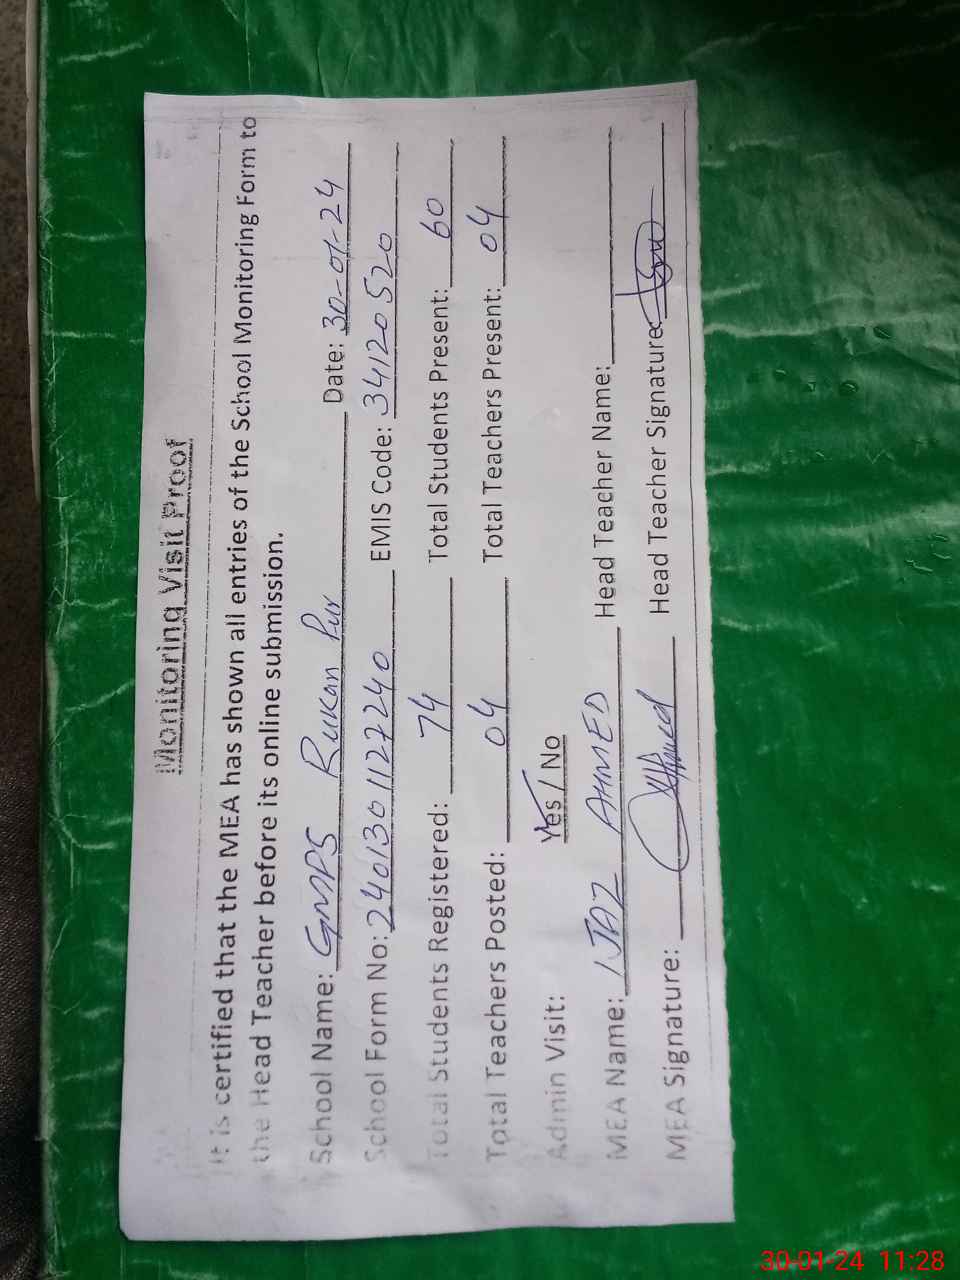 Monitoring Visit Proof
It is certified that the MEA has shown all entries of the School Monitoring Form to
the Head Teacher before its online submission.
School Name: GMPS Rukan Pur Date: 30-01-24
School Form No: 2401301127240 EMIS Code: 34120520
Total Students Registered: 74 Total Students Present: 60
Total Teachers Posted: 04 Total Teachers Present: 04
Admin Visit: Yes / No
MEA Name: IJAZ AHMED Head Teacher Name:
MEA Signature: Head Teacher Signature:
30-01-24 11:28